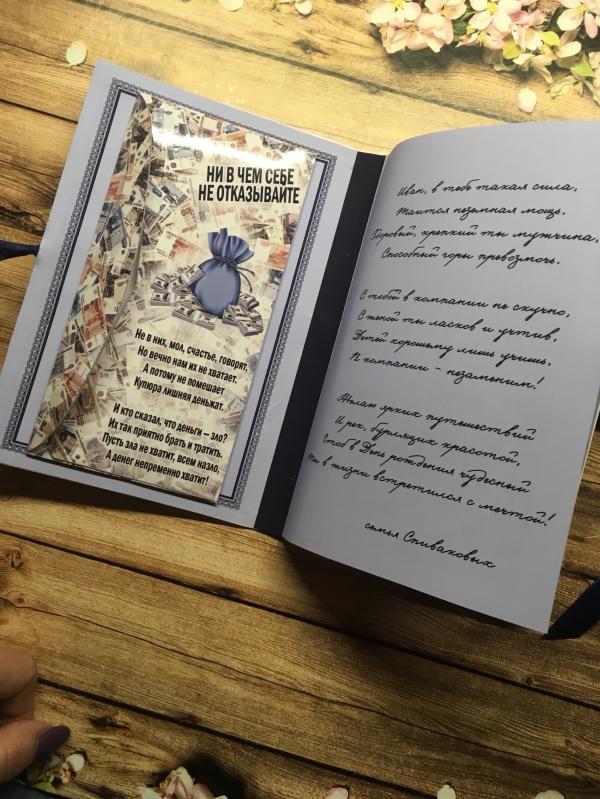 НИ В ЧЕМ СЕБЕ
НЕ ОТКАЗЫВАЙТЕ
Не в них, мол, счастье, говорят,
Но вечно нам их не хватает.
А потому не помешает
Купюра лишняя деньжат.
И кто сказал, что деньги – зло?
Их так приятно брать и тратить.
Пусть зла не хватит, всем назло,
А денег непременно хватит!
Иван, в тебе такая сила,
Таится неземная мощь.
Здоровый, крепкий ты мужчина,
Способный горы превозмочь.
С тобой в компании не скучно,
С женой ты ласков и учтив,
Детей хорошему лишь учишь,
В компании – незаменим!
Желаю ярких путешествий
И рек, бурлящих красотой,
Чтоб в День рождения чудесный
Ты в жизни встретился с мечтой!
семья Спиваковых